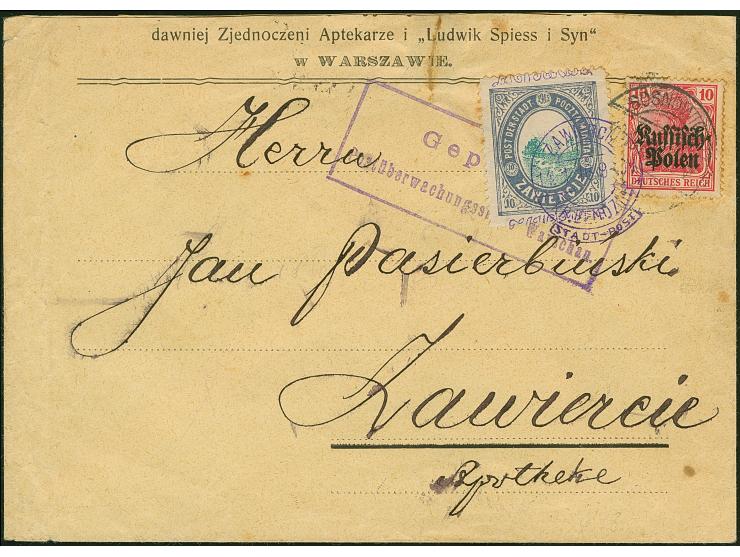 dawniej Zjednoczeni Aptekarze i „Ludwik Spiess i Syn“
w WARSZAWIE.
Herrn
Gep
Postüberwachungss Warschau.
POST DER STADT POCZTA MIEJSKA
10 ZAWIERCIE 10
ZAWIERC
STADT-POST
10
SOSNOW
Russisch-
Polen
DEUTSCHES REICH
Jan Pasierbinski
Zawiercie
Apotheke